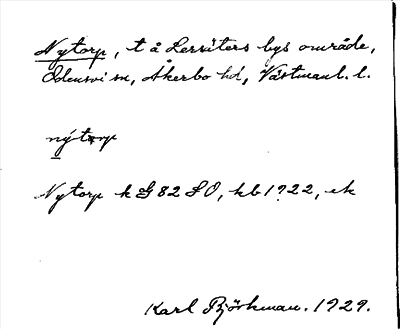 Nytorp, t å Lerviters bys område,
Odensvi sn, Åkerbo hd, Västmanl. l.
nýtorp
Nytorp k G 82 SO, kb 1722, ek
Karl Björkman. 1929.